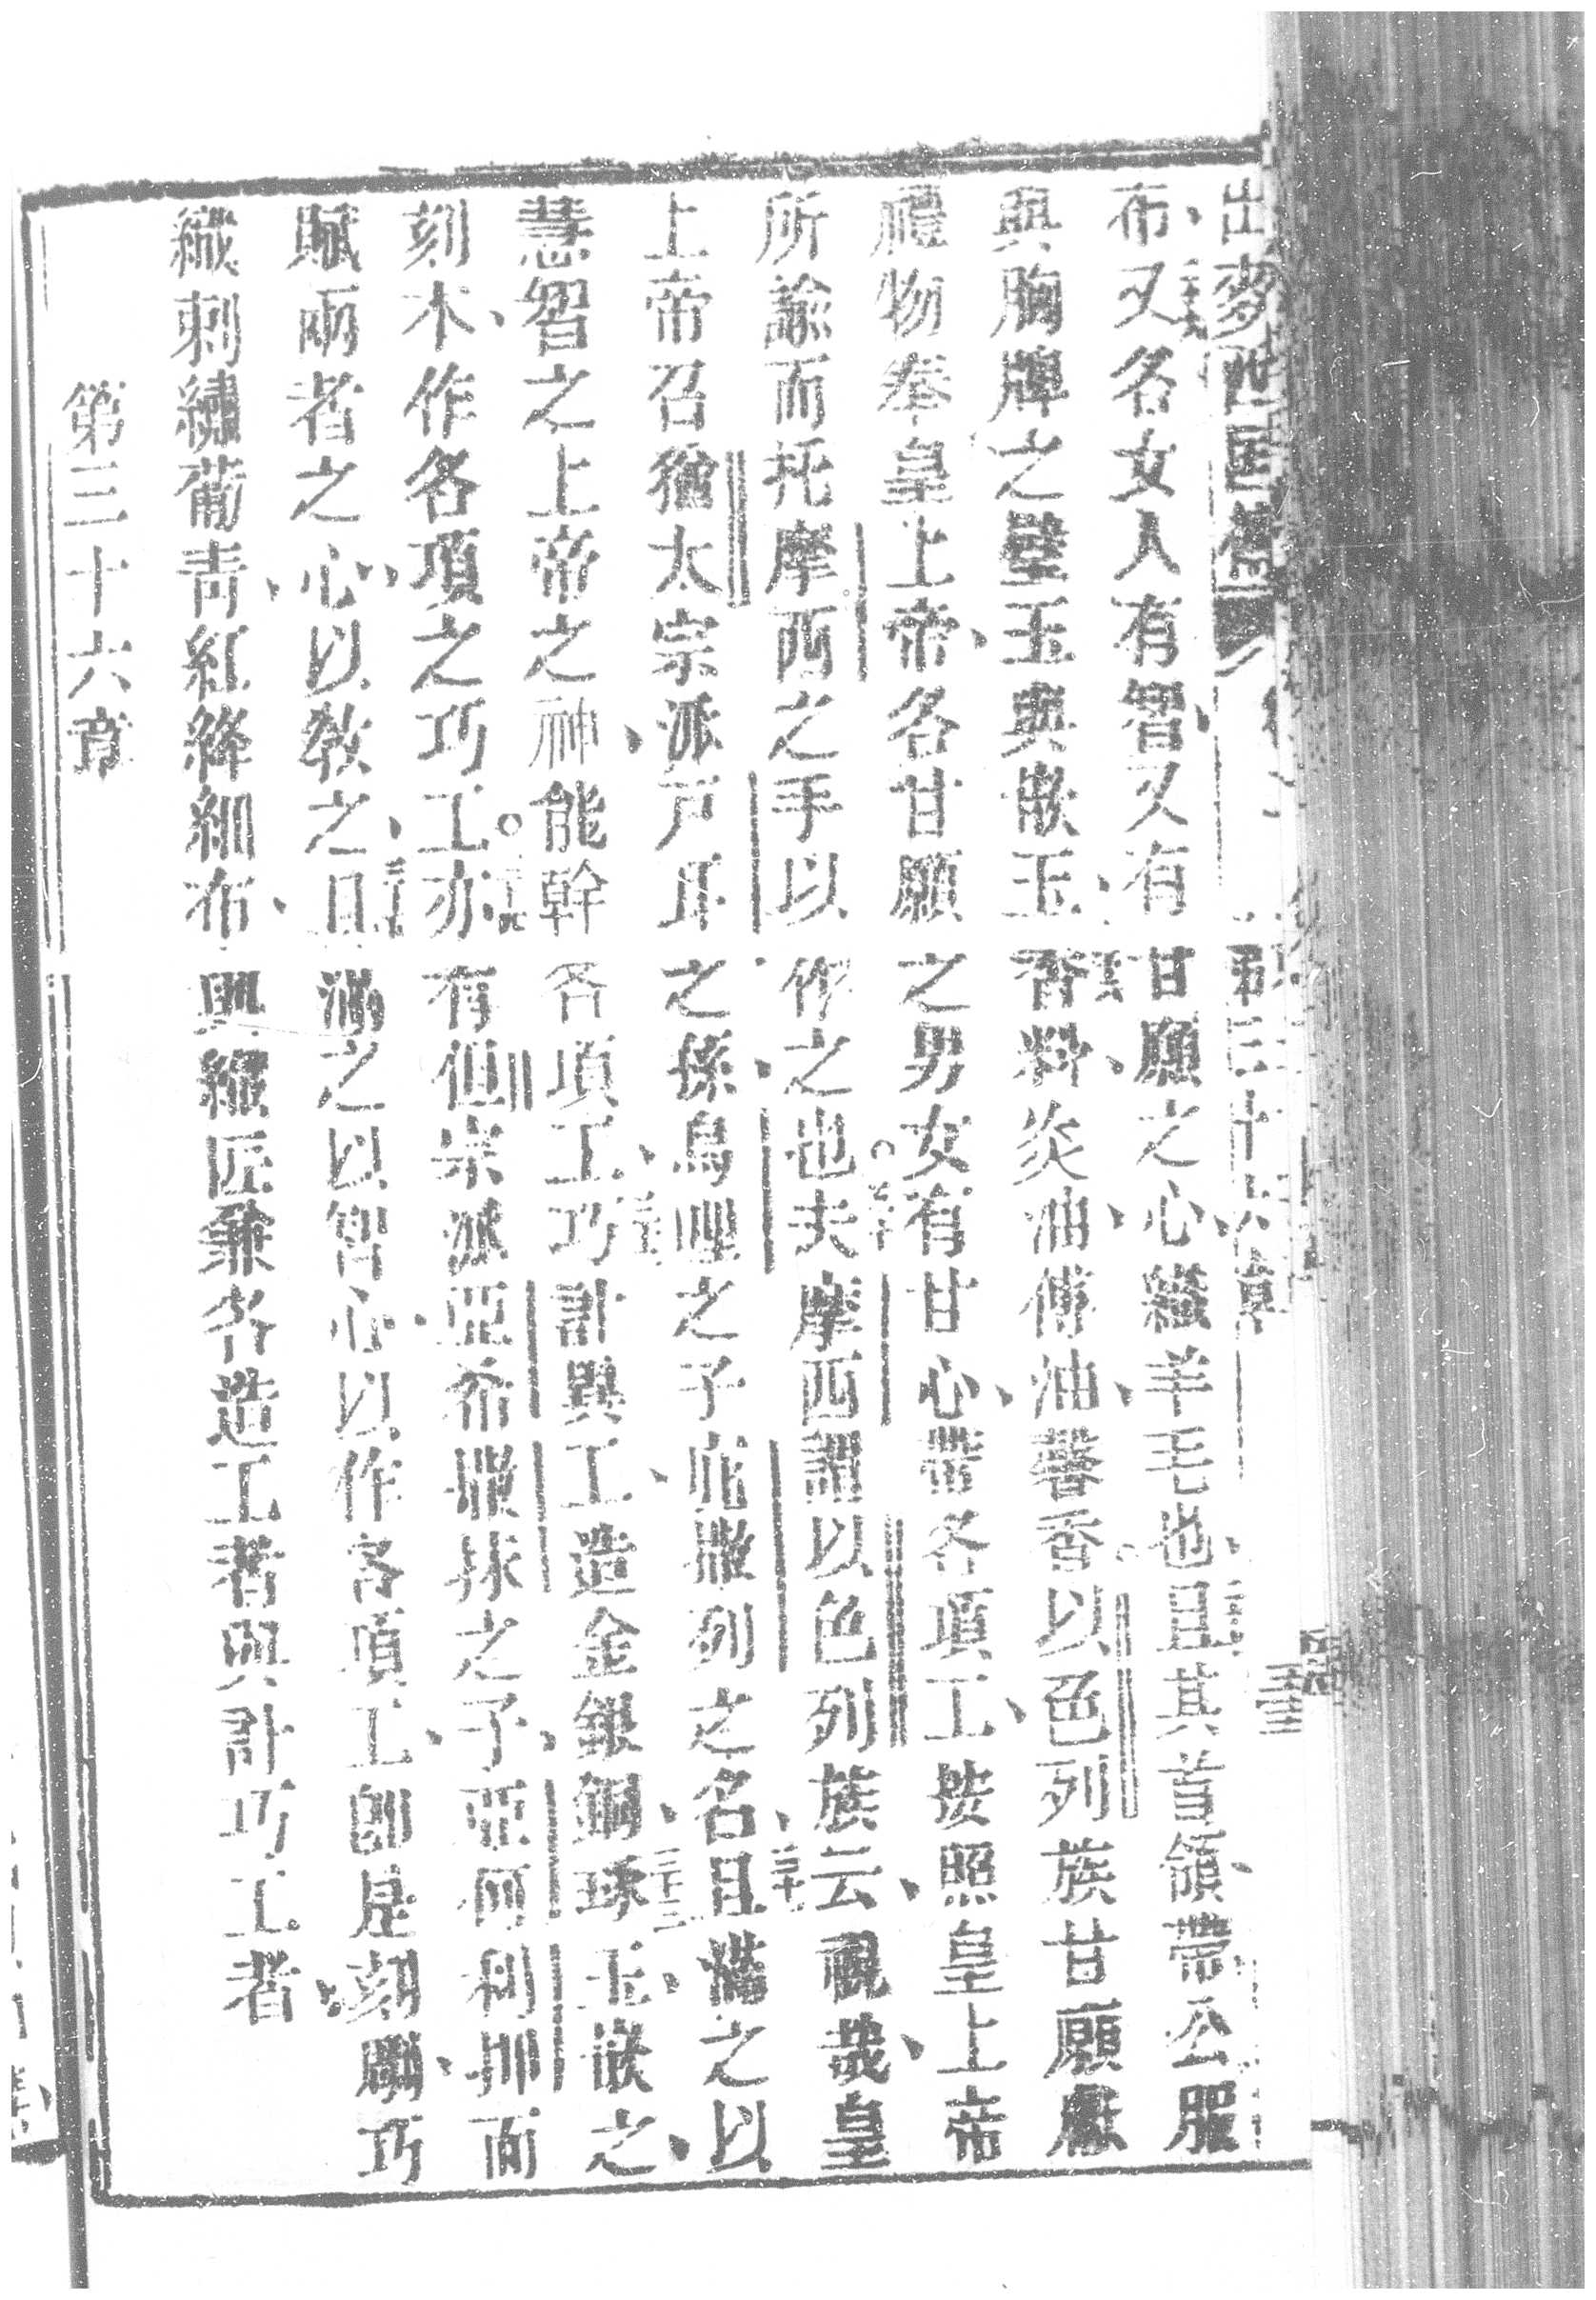 出麥西國傳 第三十六章
布、又各女人有智、又有甘願之心、織羊毛也、且其首領、帶公服
與胸牌之璧玉與嵌玉、香料、炎油、傅油、馨香。以色列族甘願獻
禮物奉皇上帝、各甘願之男女有甘心、帶各項工、按照皇上帝
所諭而托摩西之手以作之也。三十夫摩西謂以色列族云、視哉、皇
上帝召猶太宗派戶耳之孫、烏哩之子、庇撒列之名、且滿之以
慧智之上帝之神、能幹各項工、巧計與工、造金銀銅、琢玉、嵌之、
刻木、作各項之巧工。亦有但宗派亞希撒抹之子、亞何利押而
賦兩者之心、以教之、且滿之以智心、以作各項工、即是刻雕、巧
織刺繡葡青、紅絳細布、與織匠兼各造工者與計巧工者、
第三十六章